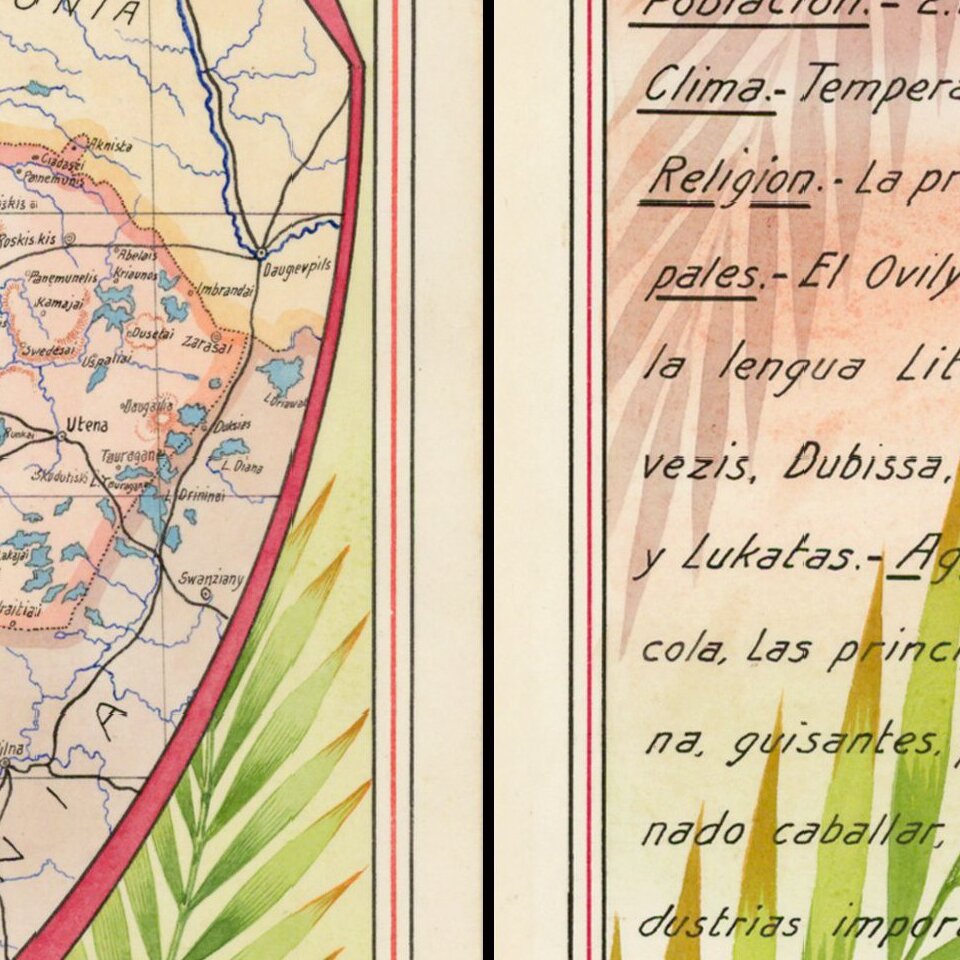 ONIA
Aknista
Ciadasei
Panemunis
Roskis.kis
Abelais
Daugevpils
Panemunelis
Kriaunos
Imbrandai
Kamajai
Dusetai
Zarasai
Swedesai
Uspaliai
Daugailia
L Driawat
Utena
Duksias
Runkai
Tauragene
L. Diana
Skudutiski
L. Tauragene
L. Drininei
akajai
Swanziany
raitiai
ilna
A
I
Población.-
Clima.- Tempera
Religion.- La pr
pales.- El Ovily
la lengua Lit
vezis, Dubissa,
y Lukatas.- Ag
cola, Las princi
na, guisantes,
nado caballar,
dustrias impor